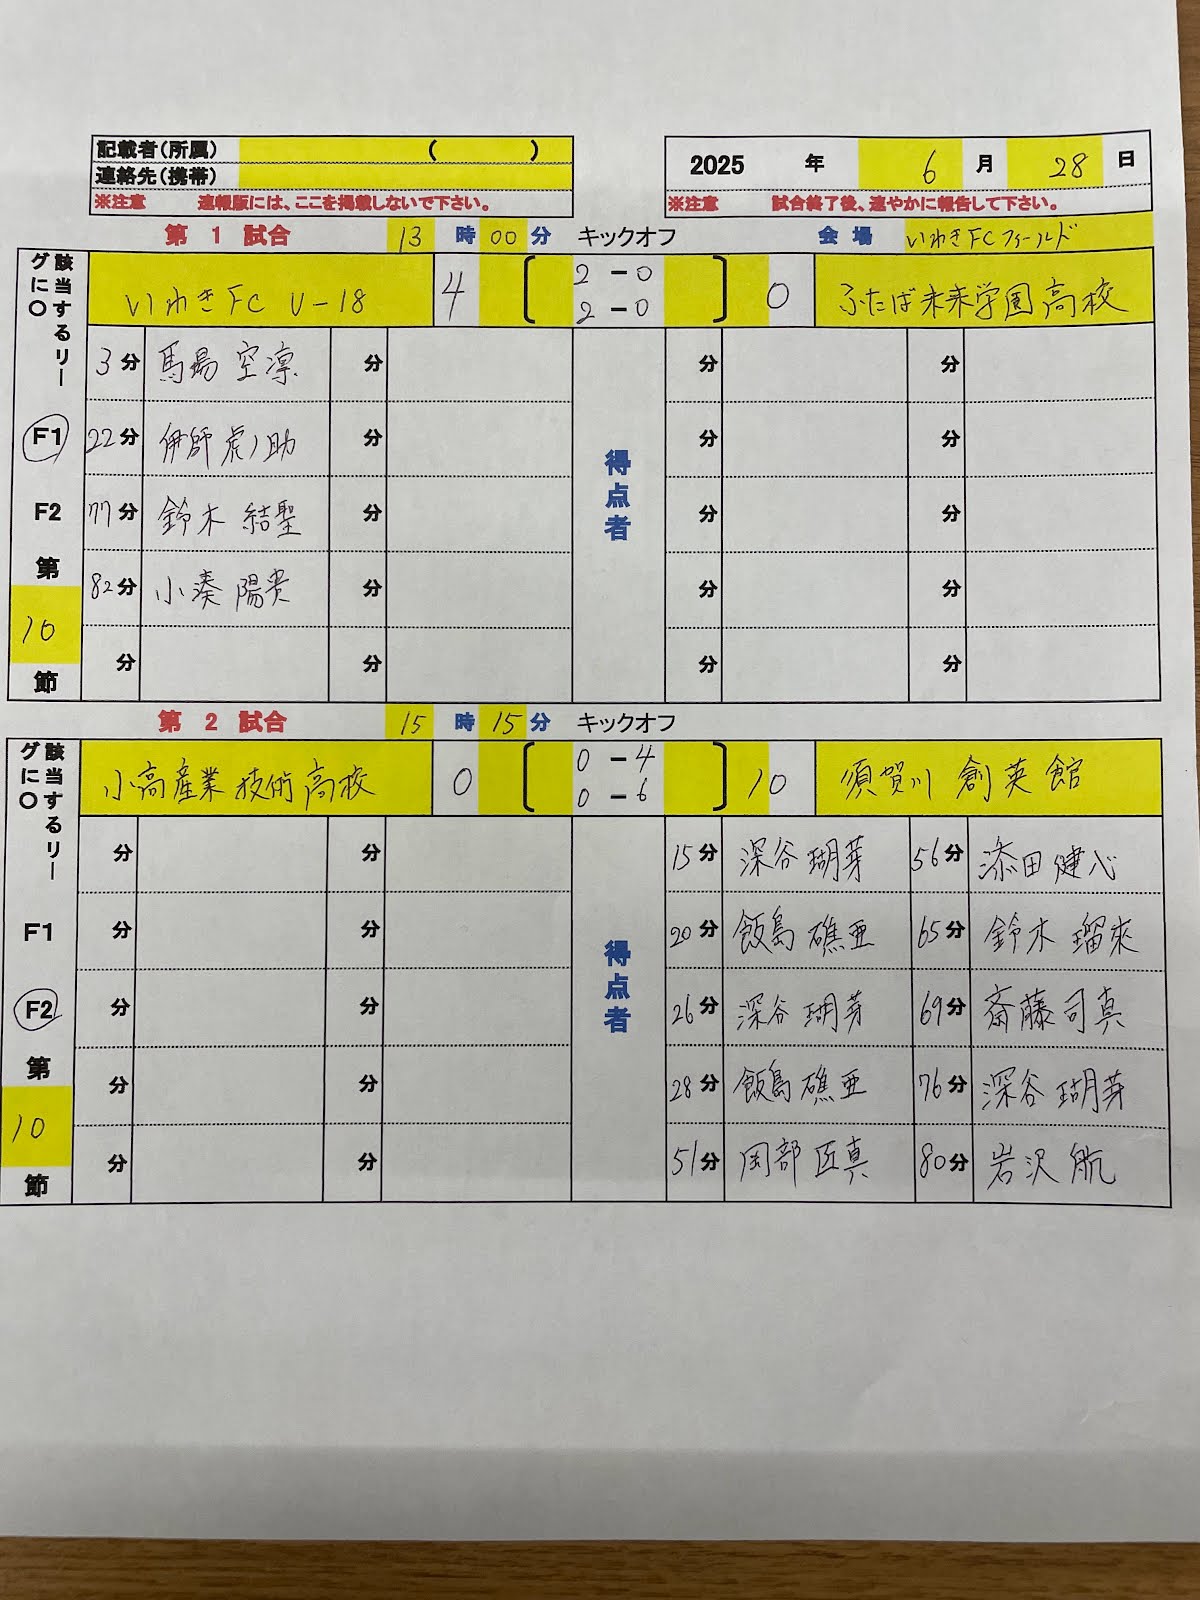 記載者(所属) ( )
連絡先(携帯)
※注意 速報版には、ここを掲載しないで下さい。
2025 年 6 月 28 日
※注意 試合終了後、速やかに報告して下さい。
第 1 試合 13 時 00 分 キックオフ 会場 いわきFCフィールド
該当するリーグに○
F1
F2
第
10
節
いわきFC U-18 4 2-0 0 ふたば未来学園高校
2-0
得点者
3分 馬場 空凛 分 分 分
22分 伊師虎ノ助 分 分 分
77分 鈴木 結聖 分 分 分
82分 小湊 陽貴 分 分 分
分 分 分 分
第 2 試合 15 時 15 分 キックオフ
該当するリーグに○
F1
F2
第
10
節
小高産業技術高校 0 0-4 10 須賀川 創英館
0-6
得点者
分 分 15分 深谷 瑚芽 56分 添田 健心
分 分 20分 飯島 礁亜 65分 鈴木 瑠來
分 分 26分 深谷 瑚芽 69分 斎藤 司真
分 分 28分 飯島 礁亜 76分 深谷 瑚芽
分 分 51分 岡部 匠真 80分 岩沢 航